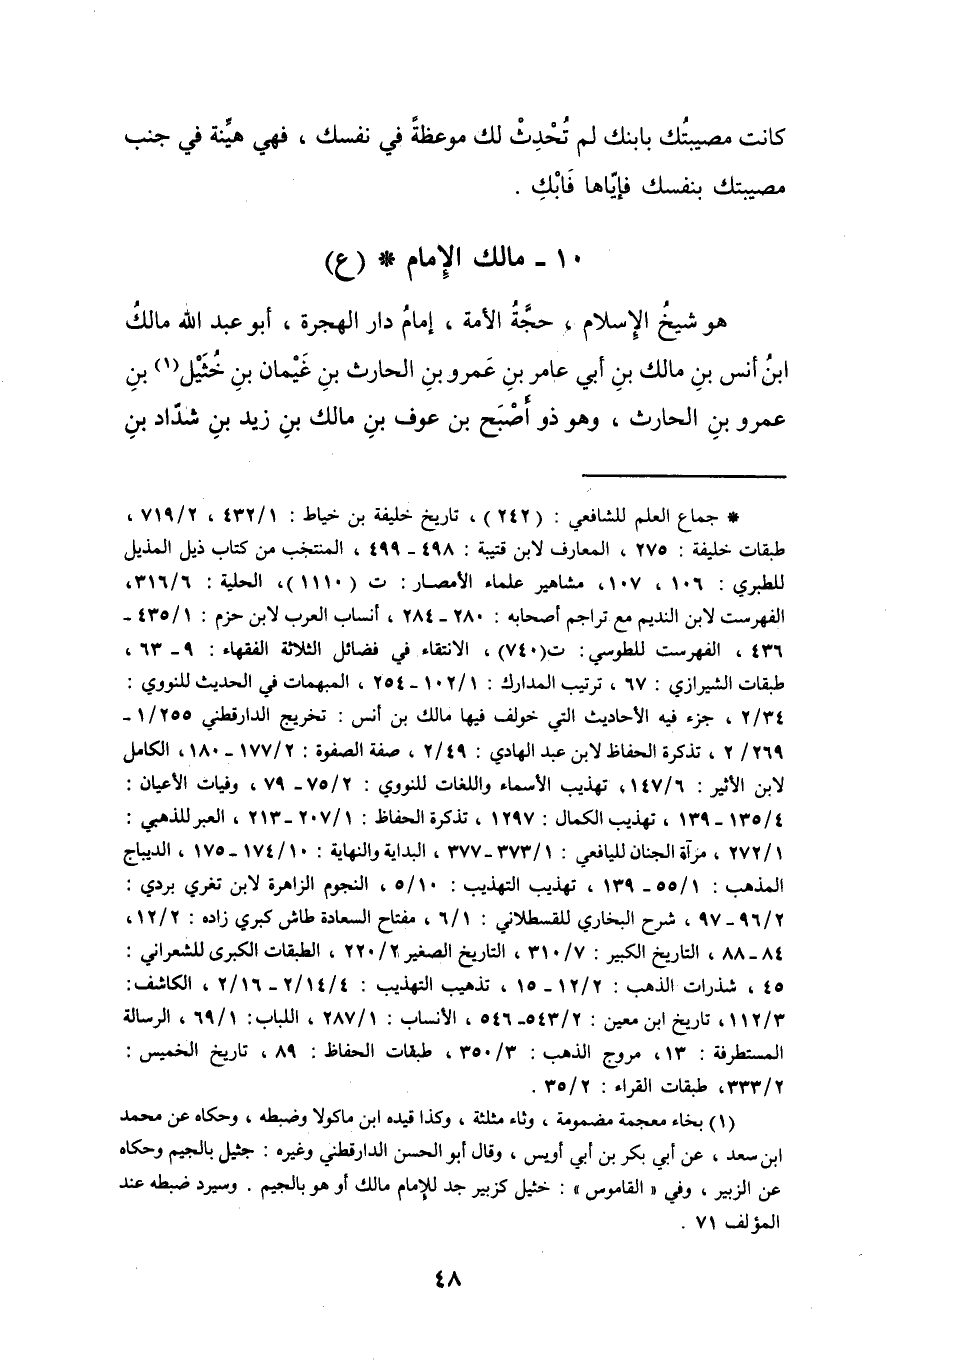 كانت مصيبتُك بابنك لم تُحْدِثْ لك موعظةً في نفسك ، فهي هيِّنة في جنب
مصيبتك بنفسك فإيّاها فَابْكِ .
١٠ - مالك الإمام * (ع)
هو شيخُ الإسلام ، حجَّةُ الأمة ، إمامُ دار الهجرة ، أبو عبد الله مالكُ
ابنُ أنس بنِ مالك بنِ أبي عامر بنِ عَمرو بنِ الحارث بنِ غَيْمان بنِ خُثَيْل(١) بنِ
عمرو بنِ الحارث ، وهو ذو أَصْبَح بن عوف بنِ مالك بنِ زيد بنِ شدّاد بنِ
* جماع العلم للشافعي : (٢٤٢) ، تاريخ خليفة بن خياط : ٤٣٢/١ ، ٧١٩/٢ ،
طبقات خليفة : ٢٧٥ ، المعارف لابن قتيبة : ٤٩٨ - ٤٩٩ ، المنتخب من كتاب ذيل المذيل
للطبري : ١٠٦ ، ١٠٧، مشاهير علماء الأمصار : ت (١١١٠)، الحلية : ٣١٦/٦،
الفهرست لابن النديم مع تراجم أصحابه : ٢٨٠ - ٢٨٤ ، أنساب العرب لابن حزم : ٤٣٥/١ -
٤٣٦ ، الفهرست للطوسي : ت(٧٤٠) ، الانتقاء في فضائل الثلاثة الفقهاء : ٩ - ٦٣ ،
طبقات الشيرازي : ٦٧ ، ترتيب المدارك : ١٠٢/١ - ٢٥٤ ، المبهمات في الحديث للنووي :
٢/٣٤ ، جزء فيه الأحاديث التي خولف فيها مالك بن أنس : تخريج الدارقطني ١/٢٥٥ -
٢/٢٦٩ ، تذكرة الحفاظ لابن عبد الهادي : ٢/٤٩ ، صفة الصفوة : ١٧٧/٢ - ١٨٠ ، الكامل
لابن الأثير : ١٤٧/٦، تهذيب الأسماء واللغات للنووي : ٧٥/٢ - ٧٩ ، وفيات الأعيان :
١٣٥/٤ - ١٣٩ ، تهذيب الكمال : ١٢٩٧ ، تذكرة الحفاظ : ٢٠٧/١ - ٢١٣ ، العبر للذهبي :
٢٧٢/١ ، مرآة الجنان لليافعي : ٣٧٣/١ - ٣٧٧ ، البداية والنهاية : ١٧٤/١٠ - ١٧٥ ، الديباج
المذهب : ٥٥/١ - ١٣٩ ، تهذيب التهذيب : ٥/١٠ ، النجوم الزاهرة لابن تغري بردي :
٩٦/٢ - ٩٧ ، شرح البخاري للقسطلاني : ٦/١ ، مفتاح السعادة طاش كبري زاده : ١٢/٢،
٨٤ - ٨٨ ، التاريخ الكبير : ٣١٠/٧ ، التاريخ الصغير ٢٢٠/٢ ، الطبقات الكبرى للشعراني :
٤٥ ، شذرات الذهب : ١٢/٢ - ١٥ ، تذهيب التهذيب : ٢/١٤/٤ - ٢/١٦ ، الكاشف :
١١٢/٣، تاريخ ابن معين : ٥٤٣/٢ - ٥٤٦ ، الأنساب : ٢٨٧/١ ، اللباب : ٦٩/١ ، الرسالة
المستطرفة : ١٣ ، مروج الذهب : ٣٥٠/٣ ، طبقات الحفاظ : ٨٩ ، تاريخ الخميس :
٣٣٣/٢، طبقات القراء : ٣٥/٢ .
(١) بخاء معجمة مضمومة ، وثاء مثلثة ، وكذا قيده ابن ماكولا وضبطه ، وحكاه عن محمد
ابن سعد ، عن أبي بكر بن أبي أويس ، وقال أبو الحسن الدارقطني وغيره : جثيل بالجيم وحكاه
عن الزبير ، وفي « القاموس » : خثيل كزبير جد للإمام مالك أو هو بالجيم . وسيرد ضبطه عند
المؤلف ٧١ .
٤٨